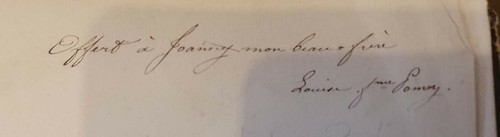 Offert à Joanny mon beau frère
Louise fme Pomey.